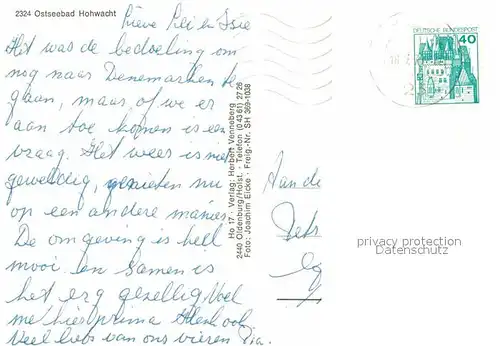 2324 Ostseebad Hohwacht
Lieve
Het was de bedoeling om
nog naar Denemarken te
gaan, maar of we er
aan toe komen is een
vraag. Het weer is niet
geweldig, genieten nu
op een andere manier.
De omgeving is heel
mooi en samen is
het erg gezellig. Voel
me hier prima
Veel liefs van ons vieren Pia.
Ho 17 · Verlag: Herbert Venneberg
2440 Oldenburg/Holst. · Telefon (0 43 61) 27 26
Foto: Joachim Eicke · Freig.-Nr. SH 369-1038
DEUTSCHE BUNDESPOST
40
BURG ELTZ
Aan de
privacy protection
Datenschutz